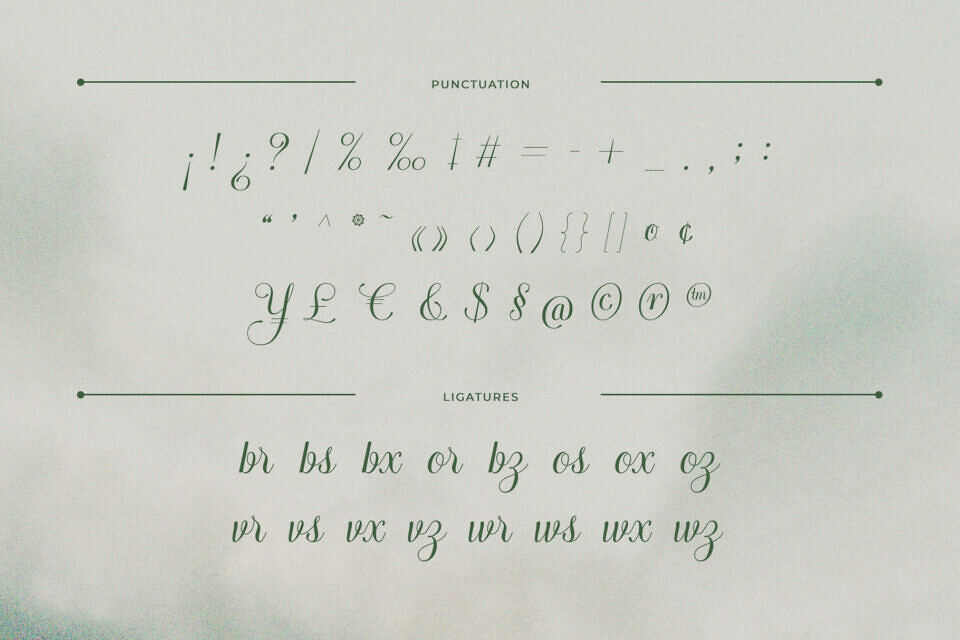 PUNCTUATION
¡ ! ¿ ? / % ‰ ‡ # = - + _ . , ; :
“ ’ ^ ~ « » ‹ › ( ) { } [ ] ¢
¥ £ € & $ § @ © ® ™
LIGATURES
br bs bx or bz os ox oz
vr vs vx vz wr ws wx wz